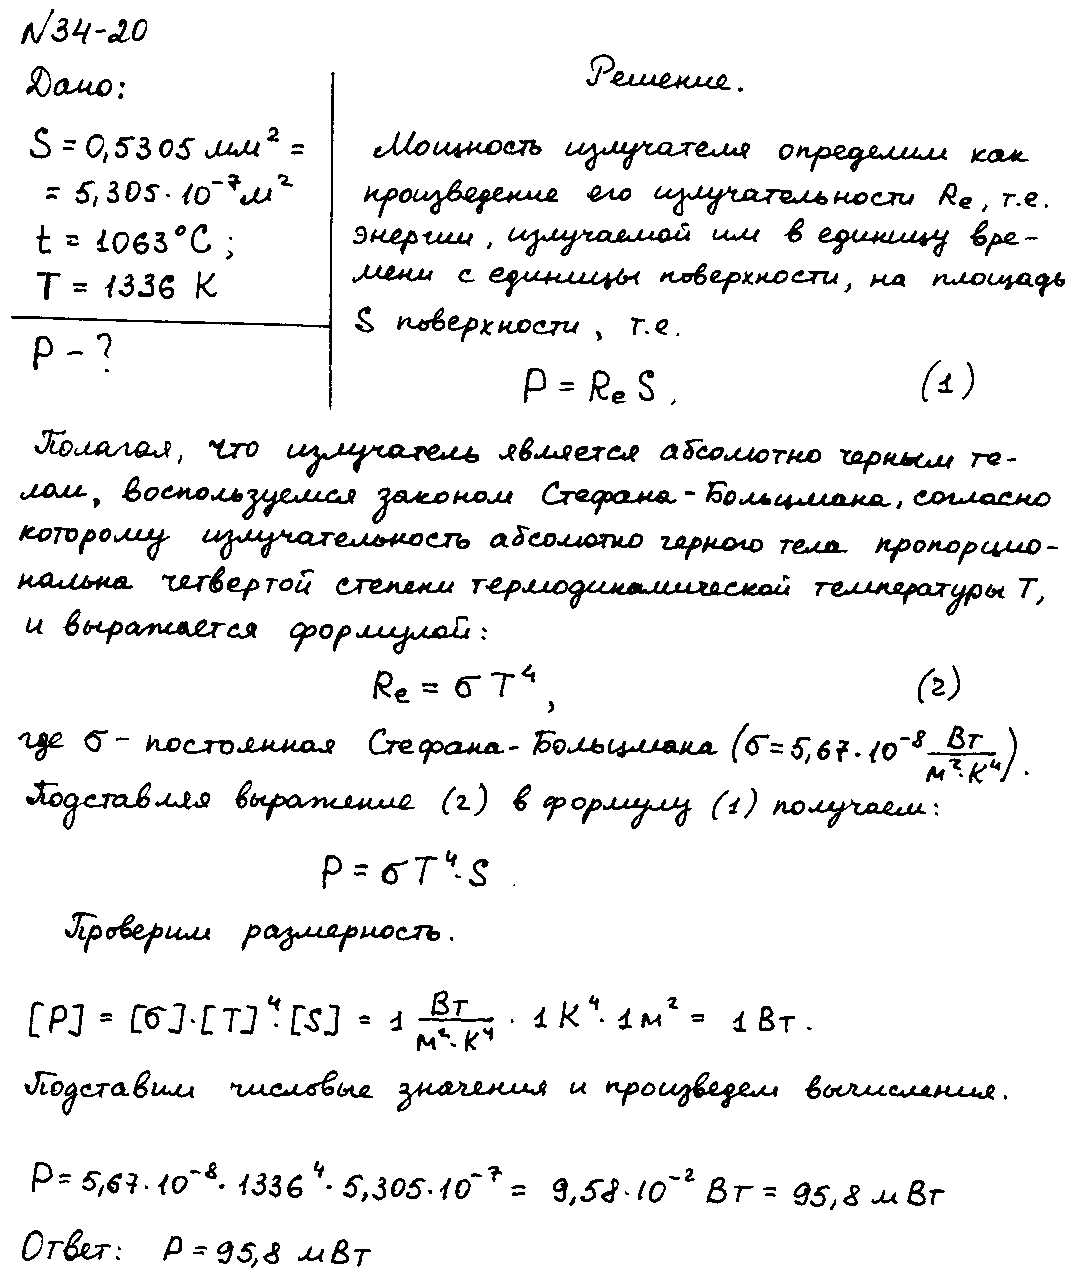 №34-20
Дано:
S = 0,5305 мм² =
= 5,305·10⁻⁷ м²
t = 1063°C ;
T = 1336 K
P - ?
Решение.
Мощность излучателя определим как
произведение его излучательности Re, т.е.
энергии, излучаемой им в единицу вре-
мени с единицы поверхности, на площадь
S поверхности, т.е.
P = Re S, (1)
Полагая, что излучатель является абсолютно черным те-
лом, воспользуемся законом Стефана-Больцмана, согласно
которому излучательность абсолютно черного тела пропорцио-
нальна четвертой степени термодинамической температуры T,
и выражается формулой:
Re = σ T⁴, (2)
где σ - постоянная Стефана-Больцмана (σ = 5,67·10⁻⁸ Вт/м²·К⁴).
Подставляя выражение (2) в формулу (1) получаем:
P = σ T⁴·S.
Проверим размерность.
[P] = [σ]·[T]⁴·[S] = 1 Вт/м²·К⁴ · 1 К⁴ · 1 м² = 1 Вт.
Подставим числовые значения и произведем вычисления.
P = 5,67·10⁻⁸·1336⁴·5,305·10⁻⁷ = 9,58·10⁻² Вт = 95,8 мВт
Ответ: P = 95,8 мВт